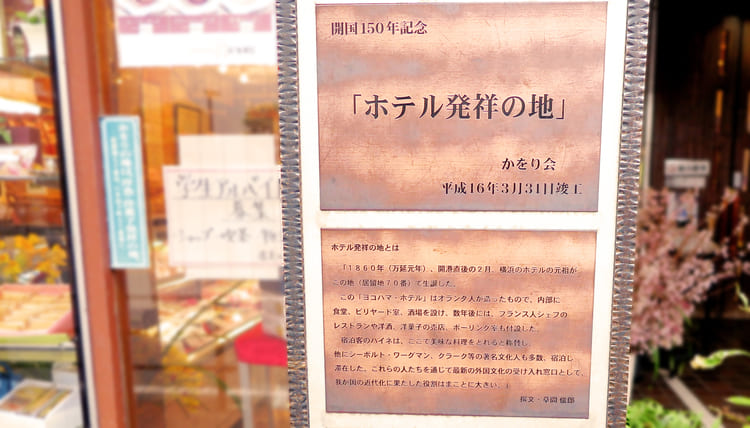 開国150年記念
「ホテル発祥の地」
かをり会
平成16年3月31日竣工
ホテル発祥の地とは
「1860年（万延元年）、開港直後の2月、横浜のホテルの元祖が
この地（居留地70番）で生誕した。
この「ヨコハマ・ホテル」はオランダ人が造ったもので、内部に
食堂、ビリヤード室、酒場を設け、数年後には、フランス人シェフの
レストランや洋酒、洋菓子の売店、ボーリング室も付設した。
宿泊客のハイネは、ここで美味な料理をとれると称賛し、
他にシーボルト・ワーグマン、クラーク等の著名文化人も多数、宿泊し
滞在した。これらの人たちを通じて最新の外国文化の受け入れ窓口として、
我が国の近代化に果たした役割はまことに大きい。」
撰文・草間俊郎
学生アルバイト
募集
ショップ 喫茶